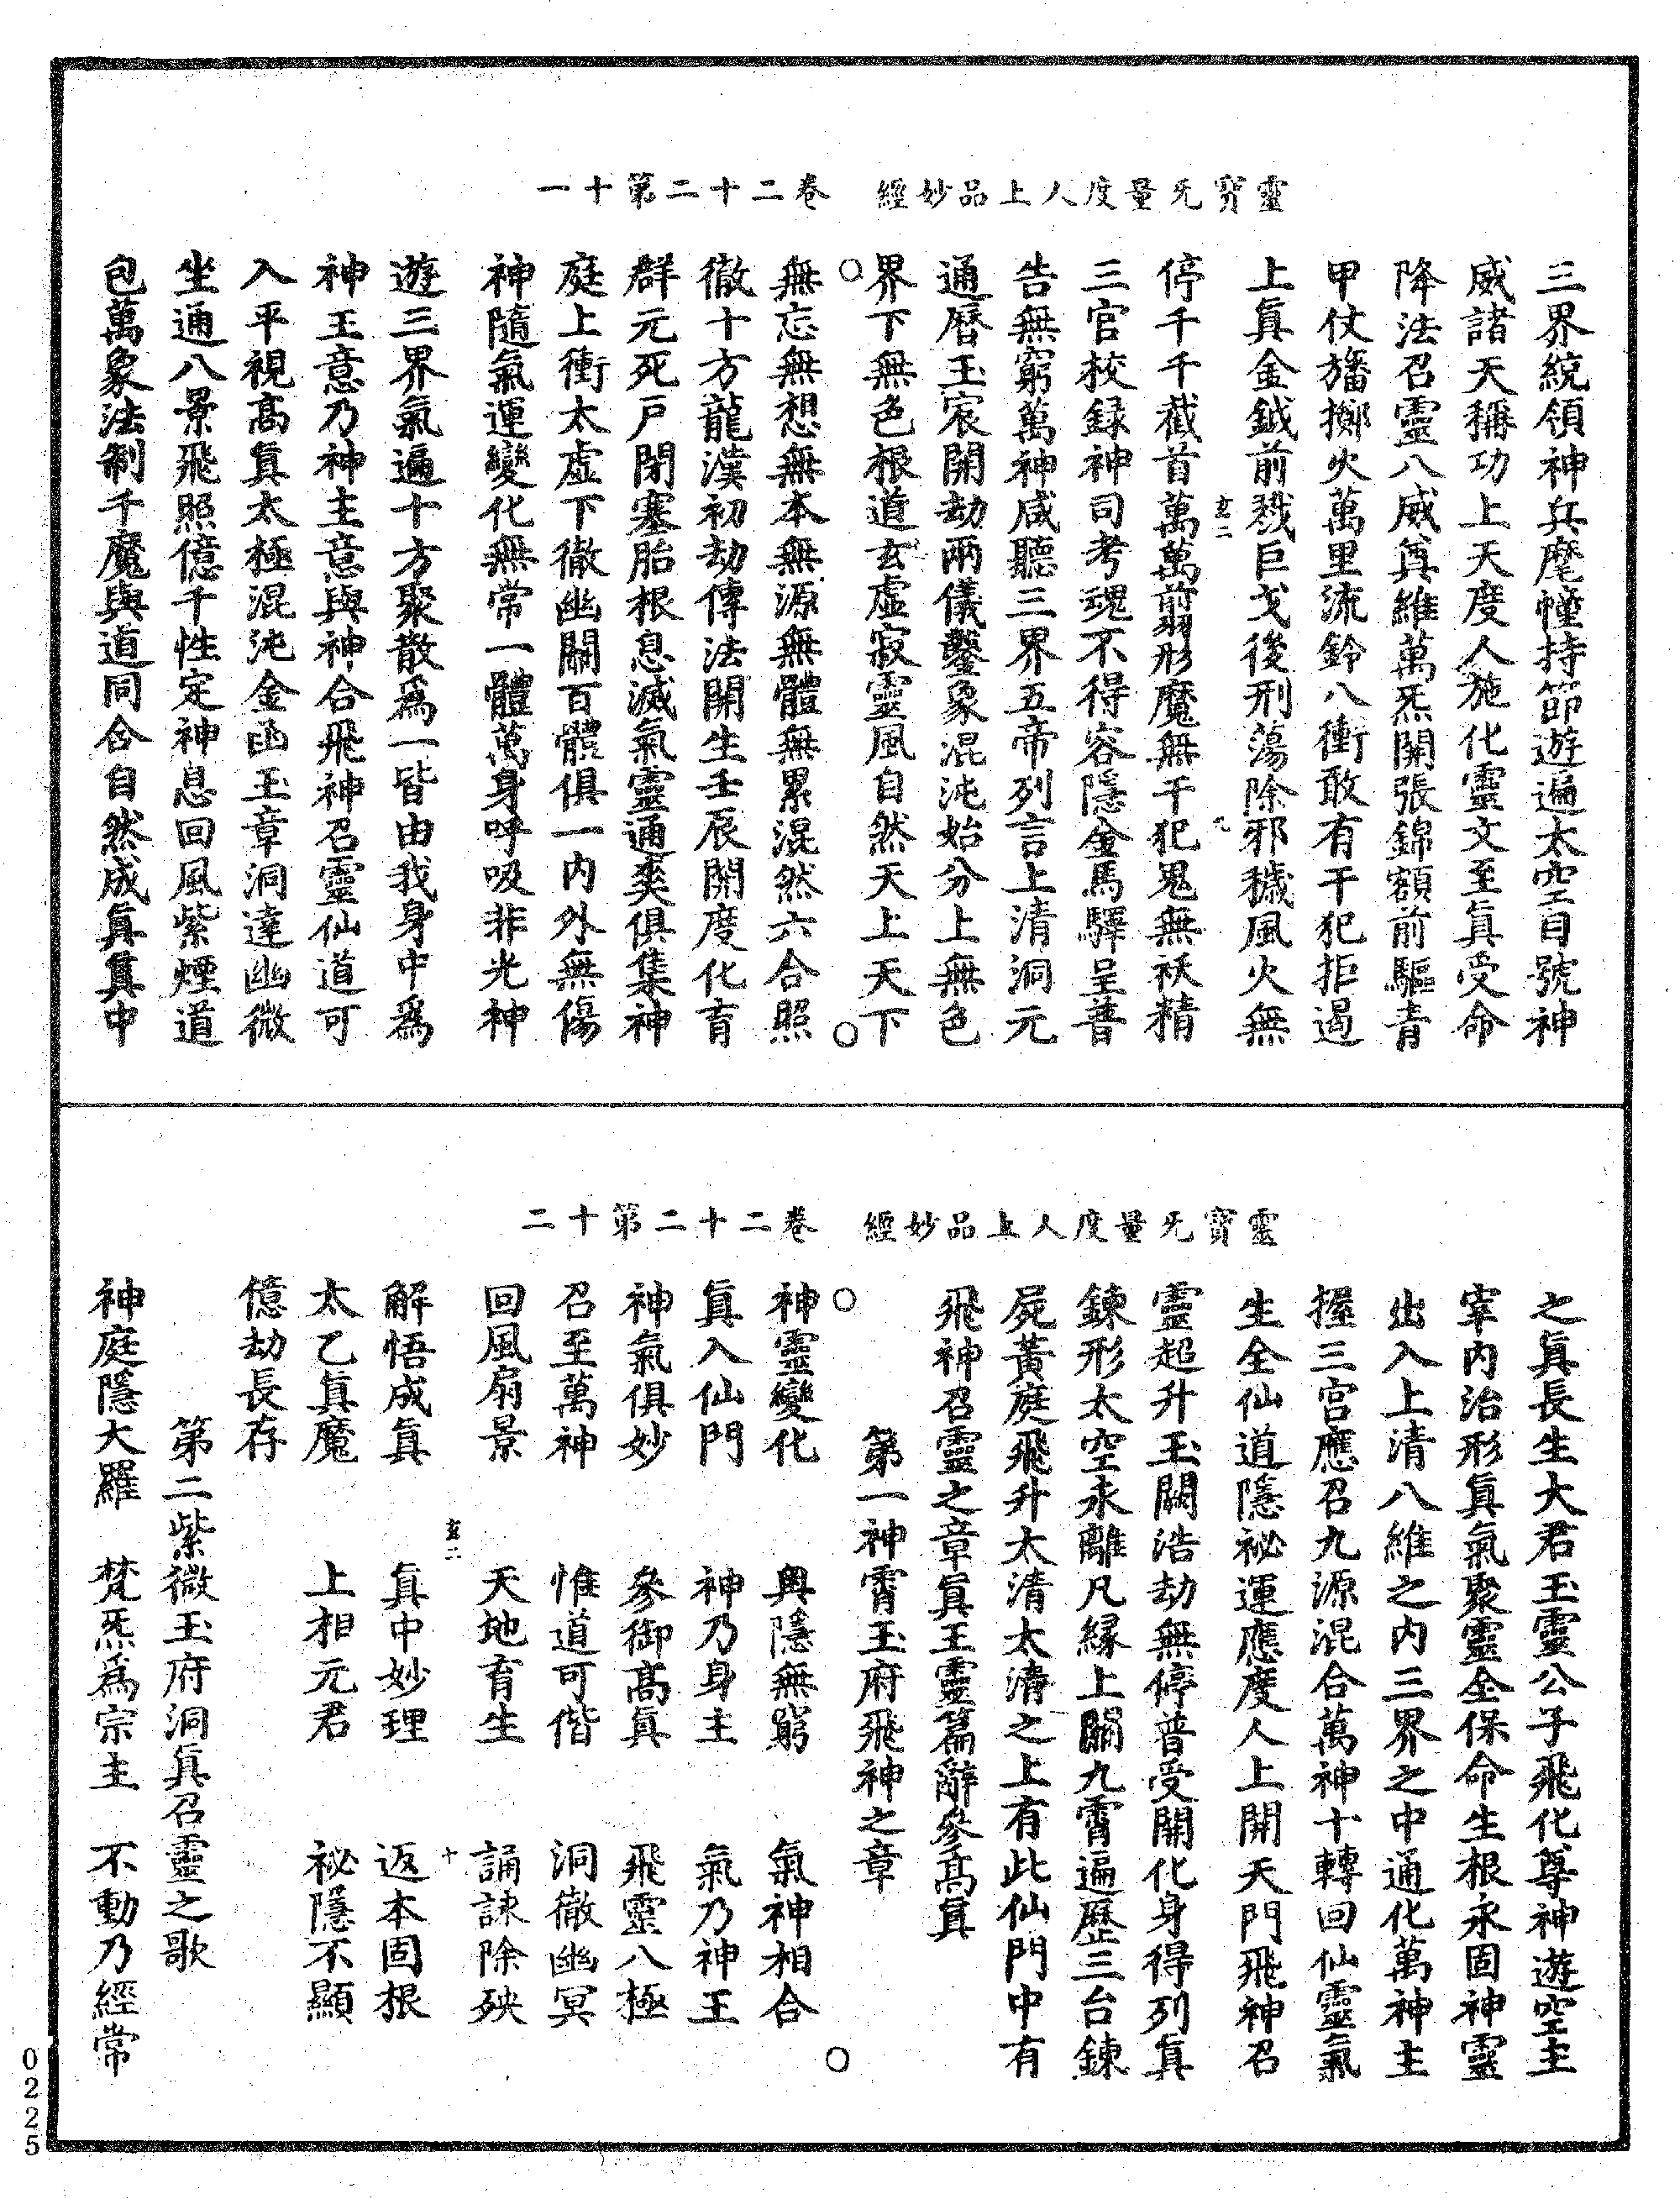 靈寶旡量度人上品妙經　卷二十二第十一
三界統領神兵麾幢持節遊遍太空目號神
威諸天稱功上天度人施化靈文至真受命
降法召靈八威真維萬炁開張錦額前驅青
甲仗旛擲火萬里流鈴八衝敢有干犯拒遏
上真金鉞前戮巨戈後刑蕩除邪穢風火無
玄二
九
停千千截首萬萬翦形魔無干犯鬼無袄精
三官校録神司考魂不得容隱金馬驛呈普
告無窮萬神咸聽三界五帝列言上清洞元
通曆玉宸開劫兩儀鑿象混沌始分上無色
界下無色根道玄虛寂靈風自然天上天下
無忘無想無本無源無體無累混然六合照
徹十方龍漢初劫傳法開生壬辰開度化育
群元死戶閉塞胎根息滅氣靈通奕俱集神
庭上衝太虛下徹幽關百體俱一內外無傷
神隨氣運變化無常一體萬身呼吸非光神
遊三界氣遍十方聚散爲一皆由我身中爲
神王意乃神主意與神合飛神召靈仙道可
入平視高真太極混沌金函玉章洞達幽微
坐通八景飛照億千性定神息回風紫煙道
包萬象法制千魔與道同合自然成真真中
靈寶旡量度人上品妙經　卷二十二第十二
之真長生大君玉靈公子飛化尊神遊空主
宰內治形真氣聚靈全保命生根永固神靈
出入上清八維之內三界之中通化萬神主
握三宮應召九源混合萬神十轉回仙靈氣
生全仙道隱祕運應度人上開天門飛神召
靈超升玉闕浩劫無停普受開化身得列真
鍊形太空永離凡緣上關九霄遍歷三台鍊
屍黃庭飛升太清太清之上有此仙門中有
飛神召靈之章真王靈篇辭參高真
第一神霄玉府飛神之章
神靈變化　奧隱無窮　氣神相合
真入仙門　神乃身主　氣乃神王
神氣俱妙　參御高真　飛靈八極
召至萬神　惟道可偕　洞徹幽冥
回風扇景　天地育生　誦詠除殃
玄二
十
解悟成真　真中妙理　返本固根
太乙真魔　上相元君　祕隱不顯
億劫長存
第二紫微玉府洞真召靈之歌
神庭隱大羅　梵炁爲宗主　不動乃經常
0225